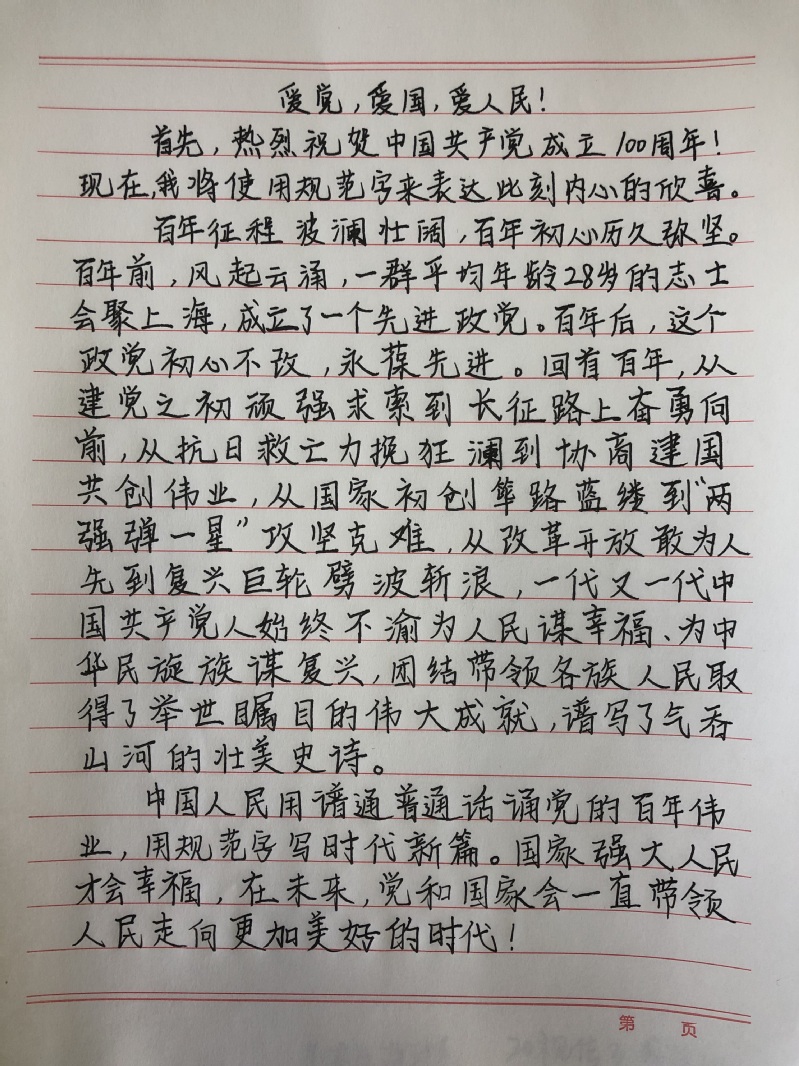 爱党,爱国,爱人民!
首先,热烈祝贺中国共产党成立100周年!
现在,我将使用规范字来表达此刻内心的欣喜。
百年征程波澜壮阔,百年初心历久弥坚。
百年前,风起云涌,一群平均年龄28岁的志士
会聚上海,成立了一个先进政党。百年后,这个
政党初心不改,永葆先进。回首百年,从
建党之初顽强求索到长征路上奋勇向
前,从抗日救亡力挽狂澜到协商建国
共创伟业,从国家初创筚路蓝缕到“两
强弹一星”攻坚克难,从改革开放敢为人
先到复兴巨轮劈波斩浪,一代又一代中
国共产党人始终不渝为人民谋幸福、为中
华民旋族谋复兴,团结带领各族人民取
得了举世瞩目的伟大成就,谱写了气吞
山河的壮美史诗。
中国人民用谱通普通话诵党的百年伟
业,用规范字写时代新篇。国家强大人民
才会幸福,在未来,党和国家会一直带领
人民走向更加美好的时代!
第 页